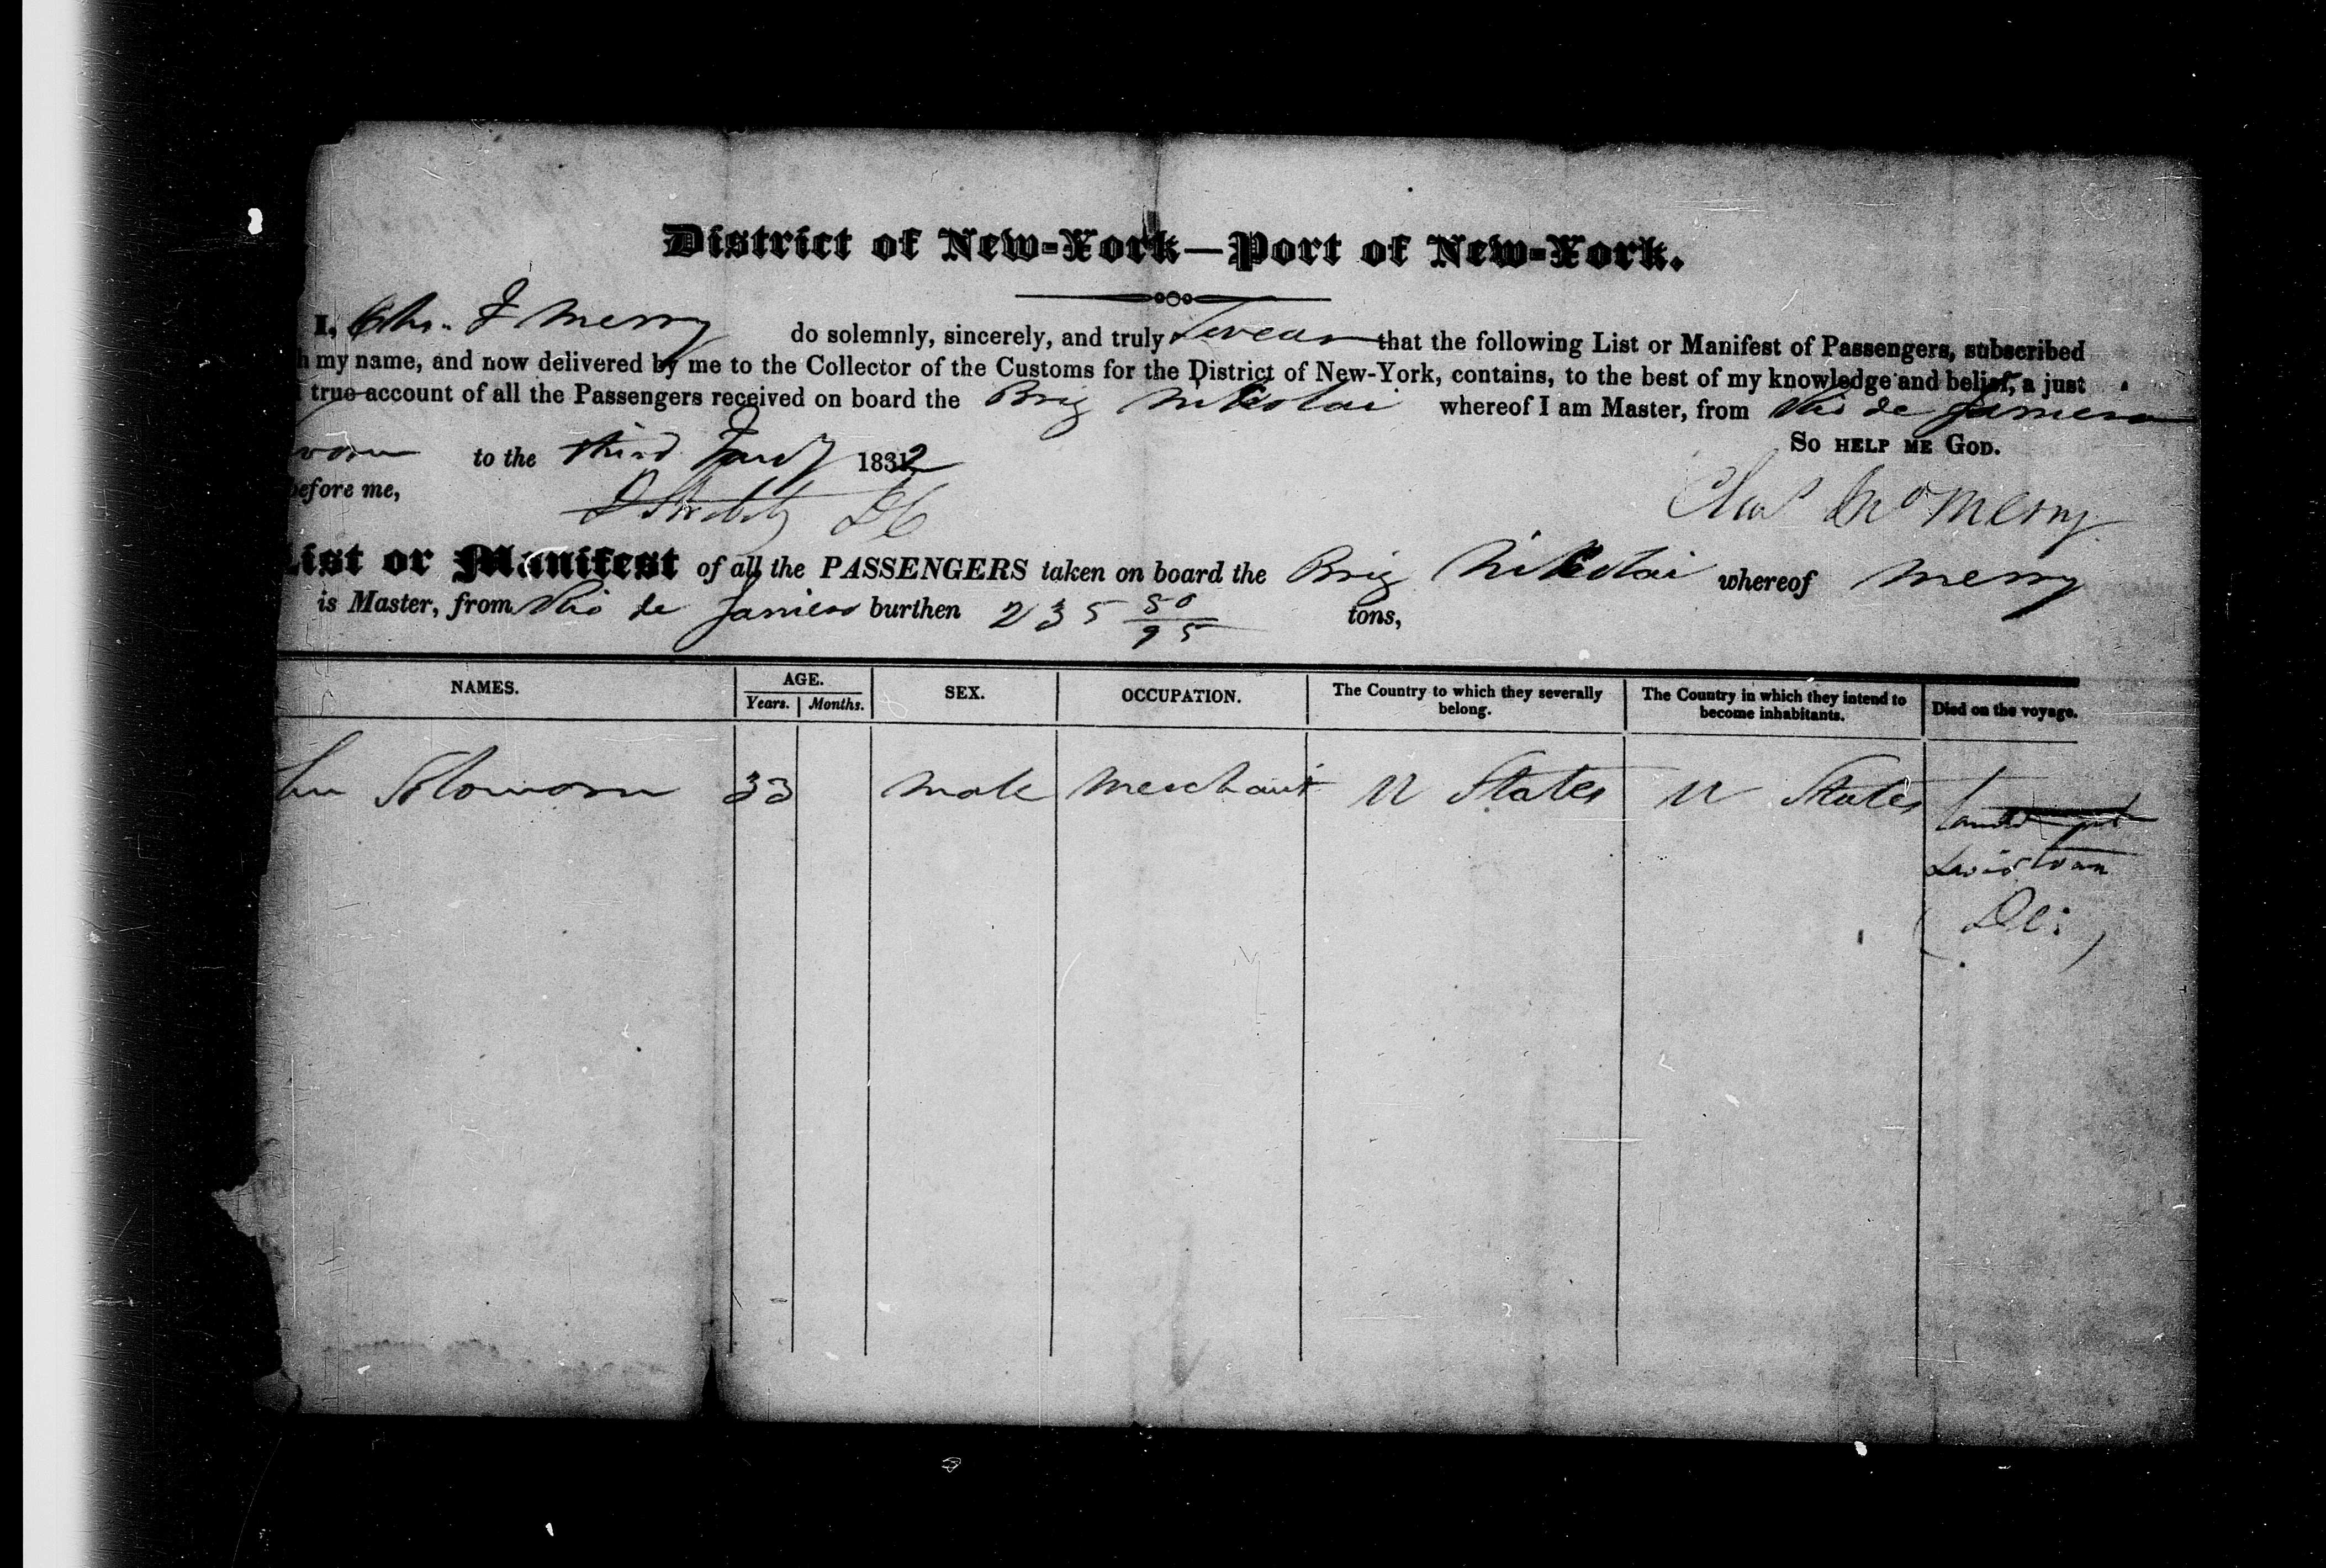 District of New-York—Port of New-York.
I, Chs. F Merry do solemnly, sincerely, and truly Swear that the following List or Manifest of Passengers, subscribed
h my name, and now delivered by me to the Collector of the Customs for the District of New-York, contains, to the best of my knowledge and belief, a just
true account of all the Passengers received on board the Brig Nikolai whereof I am Master, from Rio de Janiero
worn to the third Jany 1832 So help me God.
before me, DC Chas Merry
List or Manifest of all the PASSENGERS taken on board the Brig Nikolai whereof Merry
is Master, from Rio de Janiero burthen 235 50/95 tons,
NAMES. AGE. Years. Months. SEX. OCCUPATION. The Country to which they severally belong. The Country in which they intend to become inhabitants. Died on the voyage.
Solomon 33 Male Merchant U States U States Landed at
Lewistown
(Del)